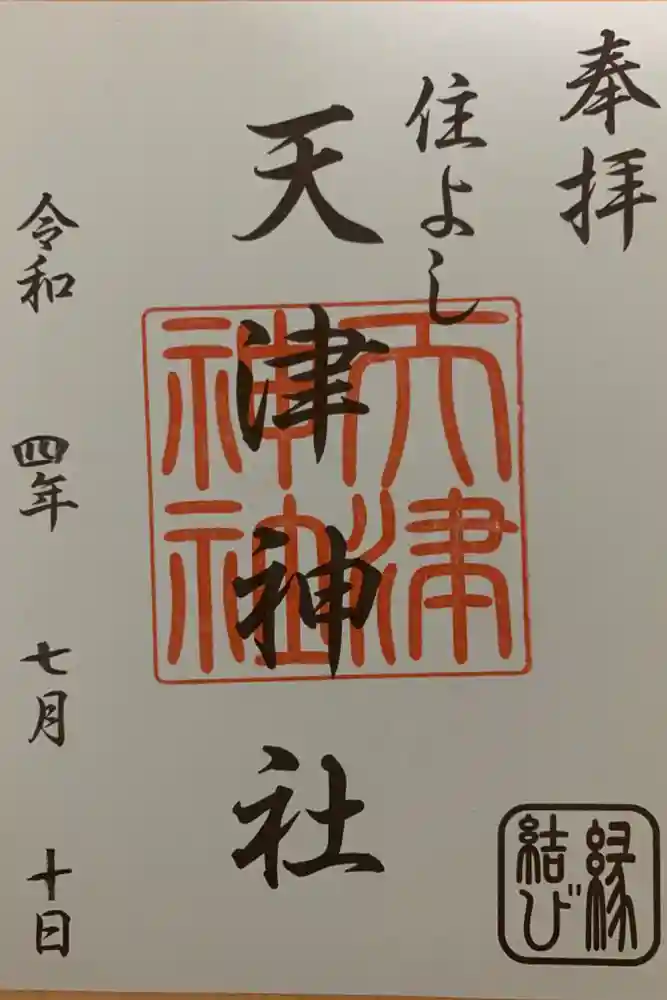 奉拝
住よし
天津神社
天津神社
令和四年七月十日
縁結び